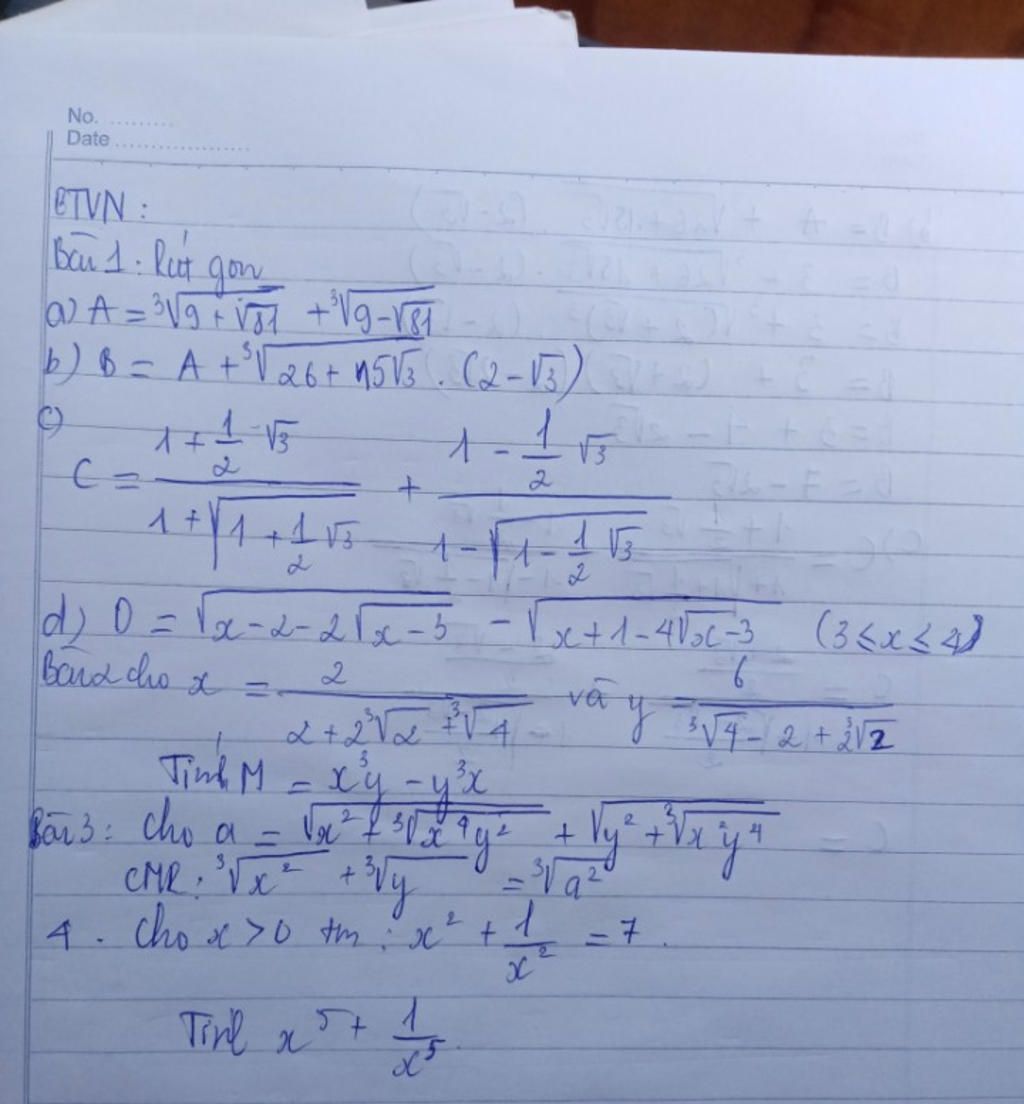 No. .........
Date ..................
BTVN :
Bài 1 : Rút gọn
a) A = ∛(9 + √81) + ∛(9 - √81)
b) B = A + ∛(26 + 15√3) . (2 - √3)
c) C = (1 + 1/2 √3)/(1 + √(1 + 1/2 √3)) + (1 - 1/2 √3)/(1 - √(1 - 1/2 √3))
d) D = √(x - 2 - 2√(x - 3)) - √(x + 1 - 4√(x - 3)) (3 ≤ x ≤ 4)
Bài 2 cho x = 2/(2 + 2∛2 + ∛4) và y = 6/(∛4 - 2 + 2∛2)
Tính M = x³y - y³x
Bài 3 : Cho a = √(x² + ∛(x⁴y²)) + √(y² + ∛(x²y⁴))
CMR : ∛(x²) + ∛y = ∛(a²)
4 . Cho x > 0 tm : x² + 1/x² = 7 .
Tính x⁵ + 1/x⁵ .